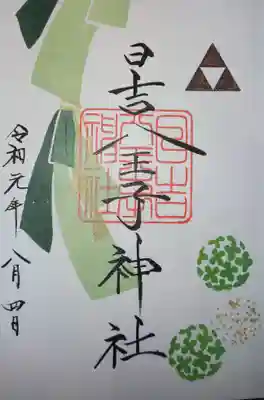 日吉八王子神社
令和元年
八月四日
日吉八王子神社